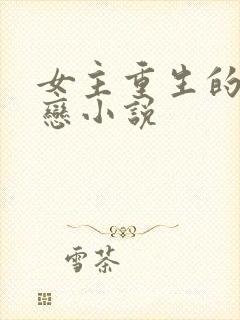 女主重生的
戀小說
雪茶